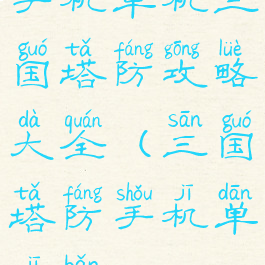 手机单机三
guó tǎ fáng gōng lüè
国塔防攻略
dà quán sān guó
大全（三国
tǎ fáng shǒu jī dān
塔防手机单
jī bǎn